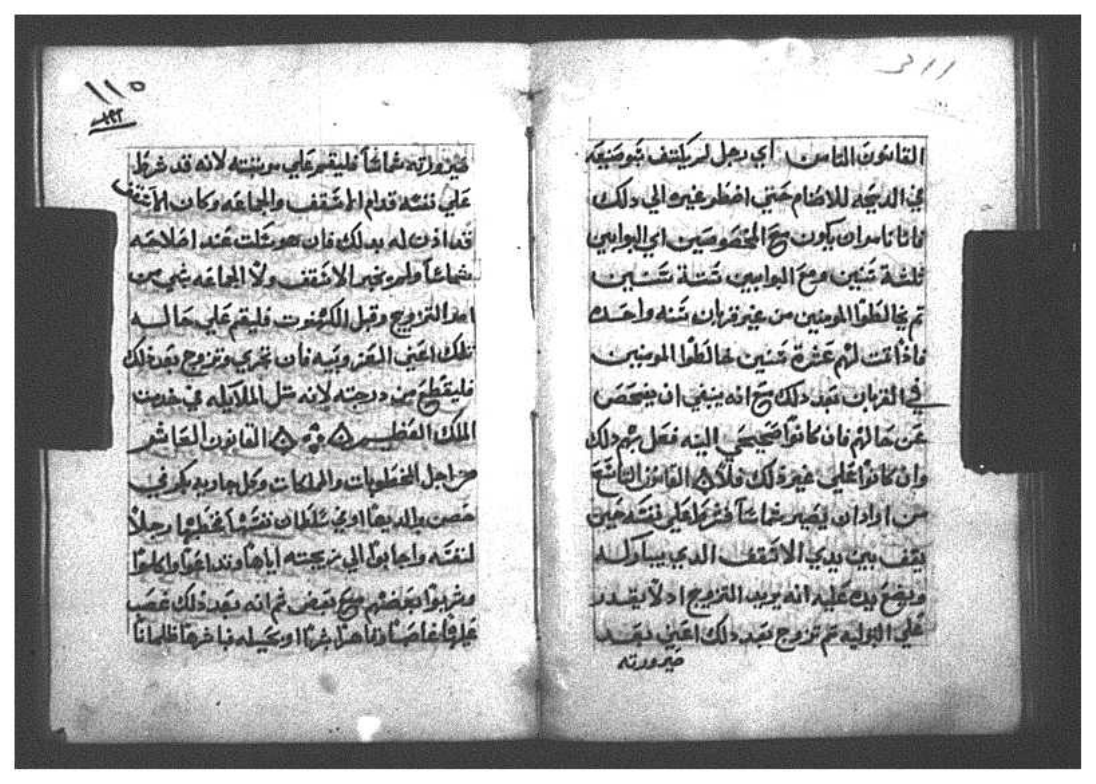 القانون الثامن اي رجل لم يكتف بتوضيعه
في الديحه للاصنام حتي اضطر غيره الي ذلك
فانا نامر ان يكون مع المخصوصين اي البوابين
ثلثة سنين ومع البوابين ستة سنين
ثم يخالطوا المومنين من غير قربان سنه واحده
فاذا تمت لهم عشرة سنين خالطوا المومنين
في القربان بعد ذلك مع انه ينبغي ان يفحص
عن حالهم فان كانوا صحيحي النيه فعل بهم ذلك
وان كانوا علي غير ذلك فلا القانون التاسع
من اراد ان يصير شماسا فشرط علي نفسه حين
يقف بين يدي الاسقف الذي يباركه
ويضع يده عليه انه يريد التزويج اذ لا يقدر
علي البوليه ثم تزوج بعد ذلك اعني بعد
صيرورته
١١٥
صيرورته شماسا فليقم علي مرتبته لانه قد شرط
علي نفسه قدام الاسقف والجماعه وكان الاسقف
قد اذن له بذلك فان هو سكت عند اصلاحه
شماسا ولم يخبر الاسقف ولا الجماعه بشي من
امر التزويج وقبل الكهنوت فليقم علي حاله
تلك اعني العزوبيه فان تجري وتزوج بعد ذلك
فليقطع من درجته لانه مثل الملايكه في خدمة
الملك العظيم القانون العاشر
من اجل المخطوبات والمملكات وكل جاريه بكر في
حضن والديها او في سلطان نفسها فخطبها رجلا
لنفسه واجابوا الي زيجته اياها وتداعوا واكلوا
وشربوا بعضهم مع بعض ثم انه بعد ذلك غصب
عليها غاصبا وقاهرا شرا او بحيله فباشرها ظلمانا